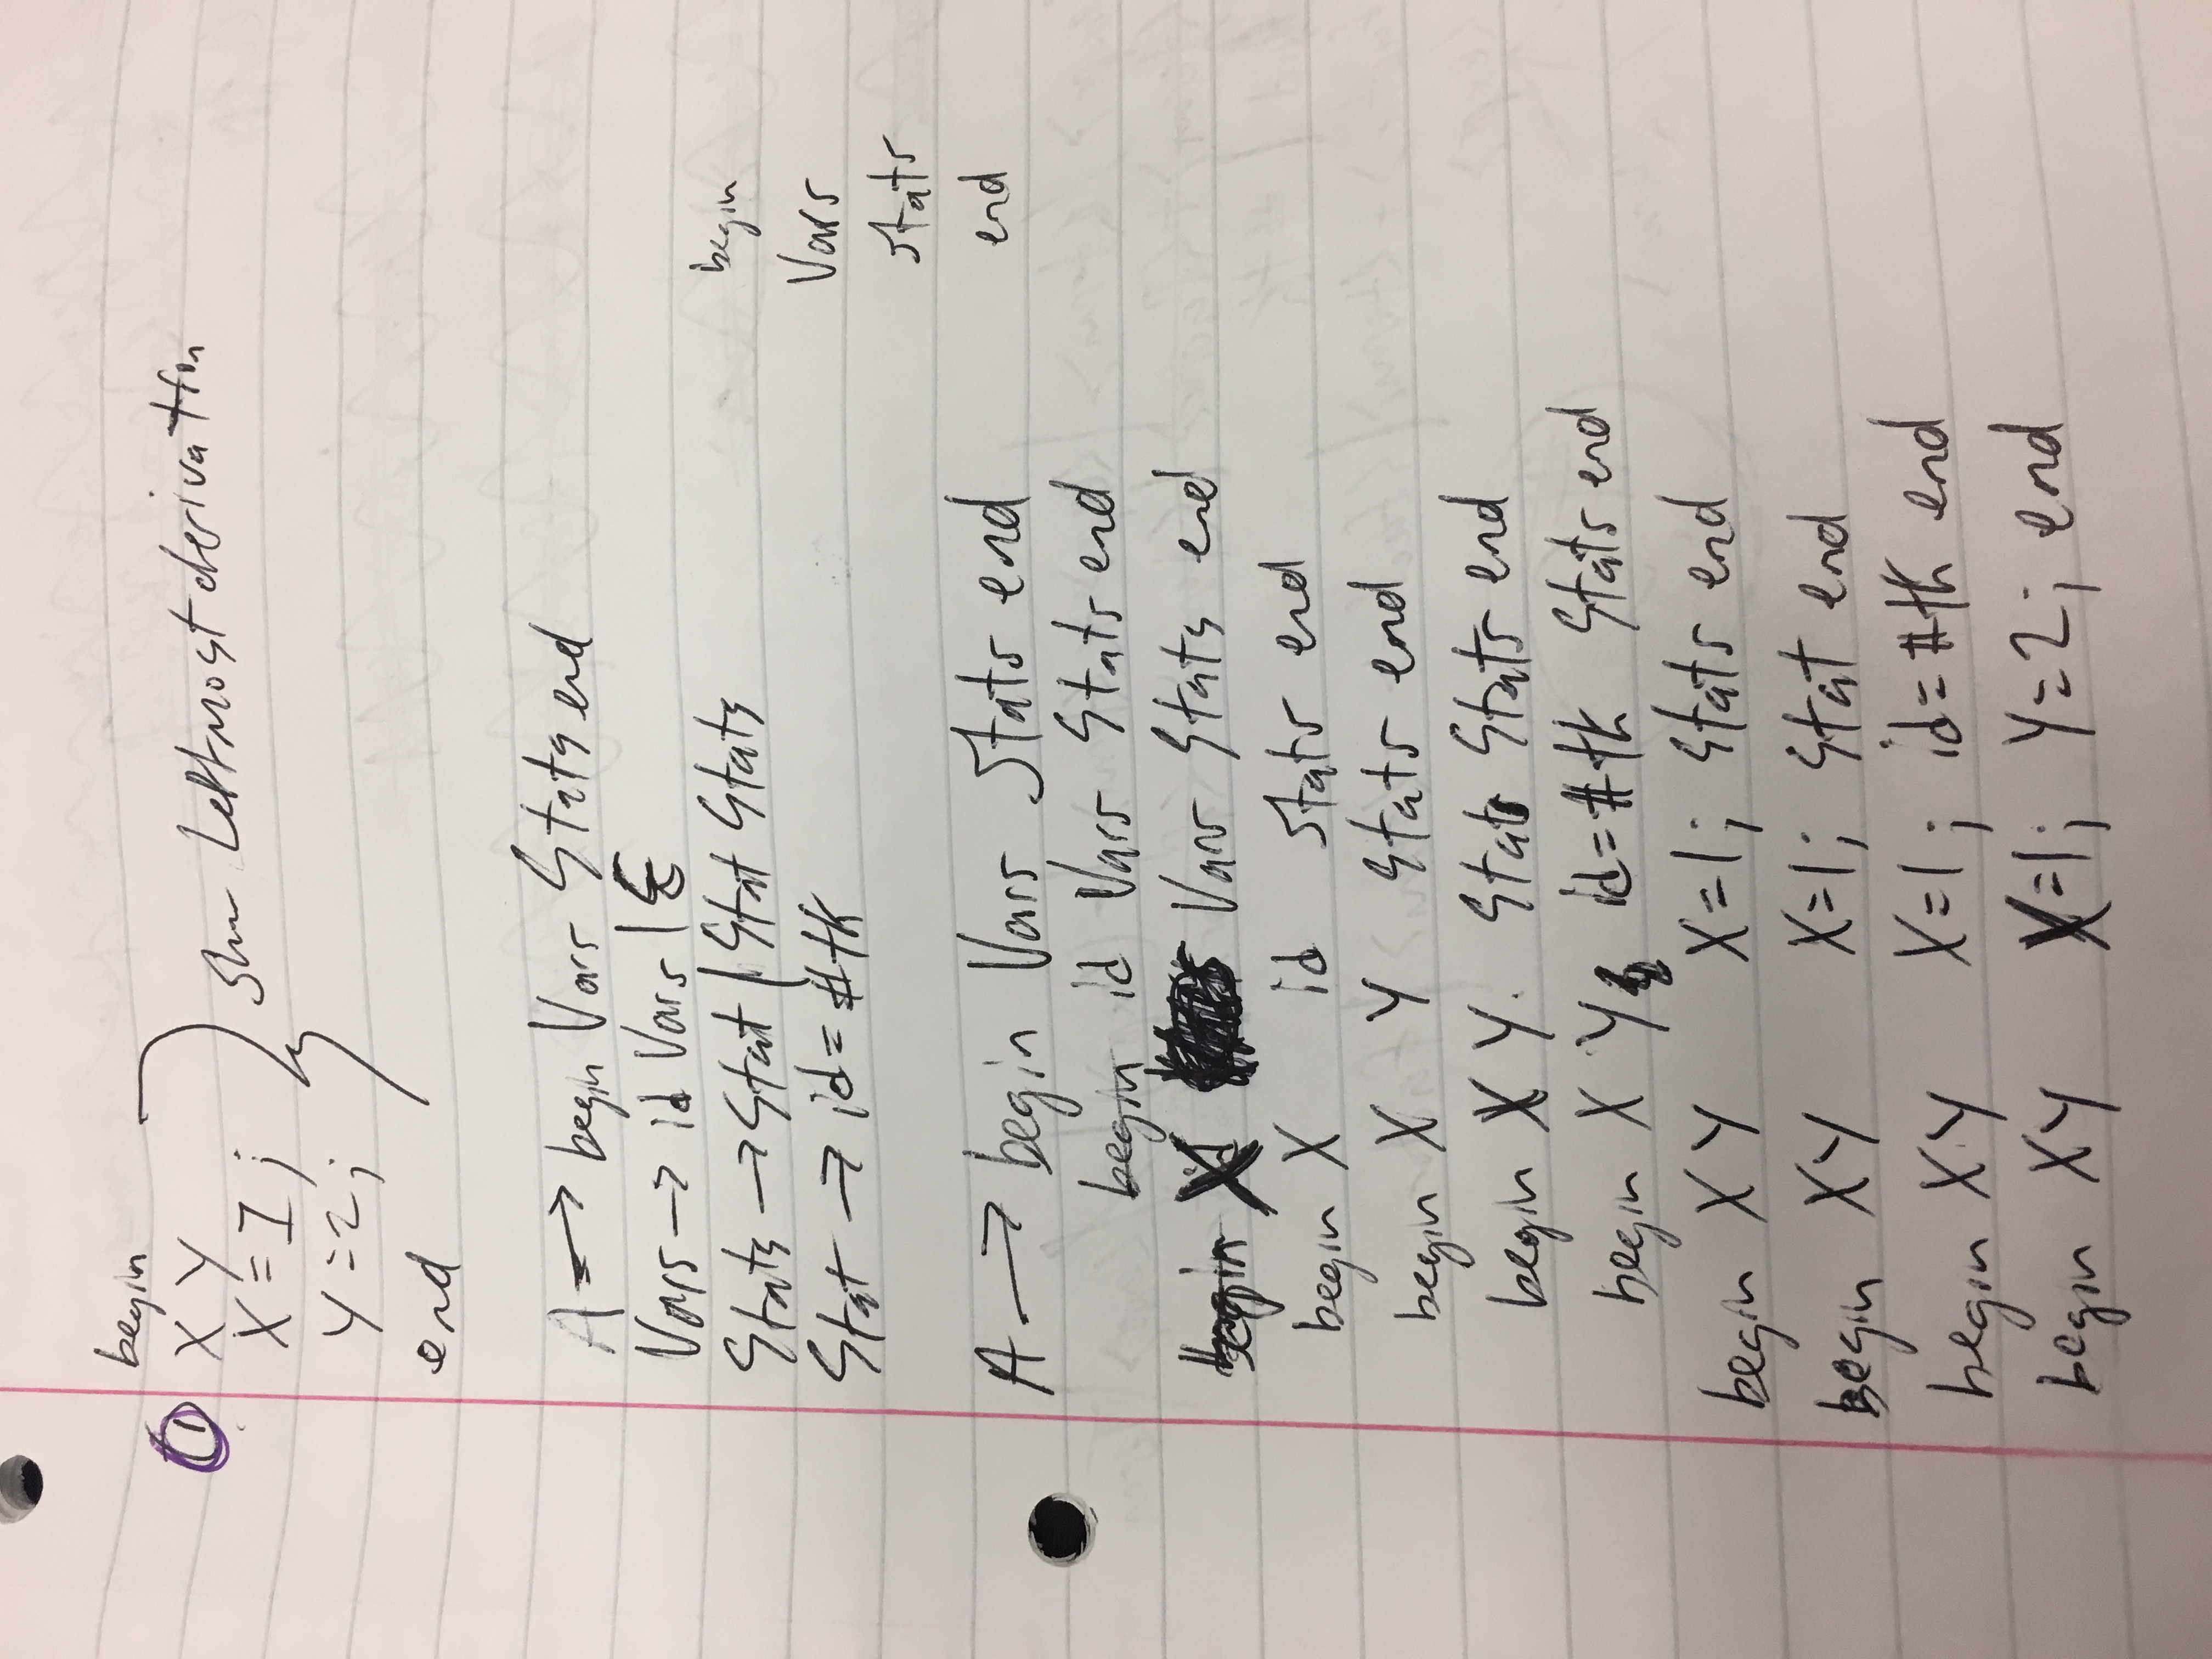 begin
① X Y
X = 1;
Y = 2;
end
show Leftmost derivation
A → begin Vars Stats end
Vars → id Vars | ε
Stats → Stat | Stat Stats
Stat → id = #tk
begin
Vars
Stats
end
A → begin Vars Stats end
begin id Vars Stats end
begin X Vars Stats end
begin X id Stats end
begin X Y Stats end
begin X Y. Stat Stats end
begin X Y id = #tk Stats end
begin X Y X=1; Stats end
begin X Y X=1; Stat end
begin X Y X=1; id = #tk end
begin X Y X=1; Y=2; end